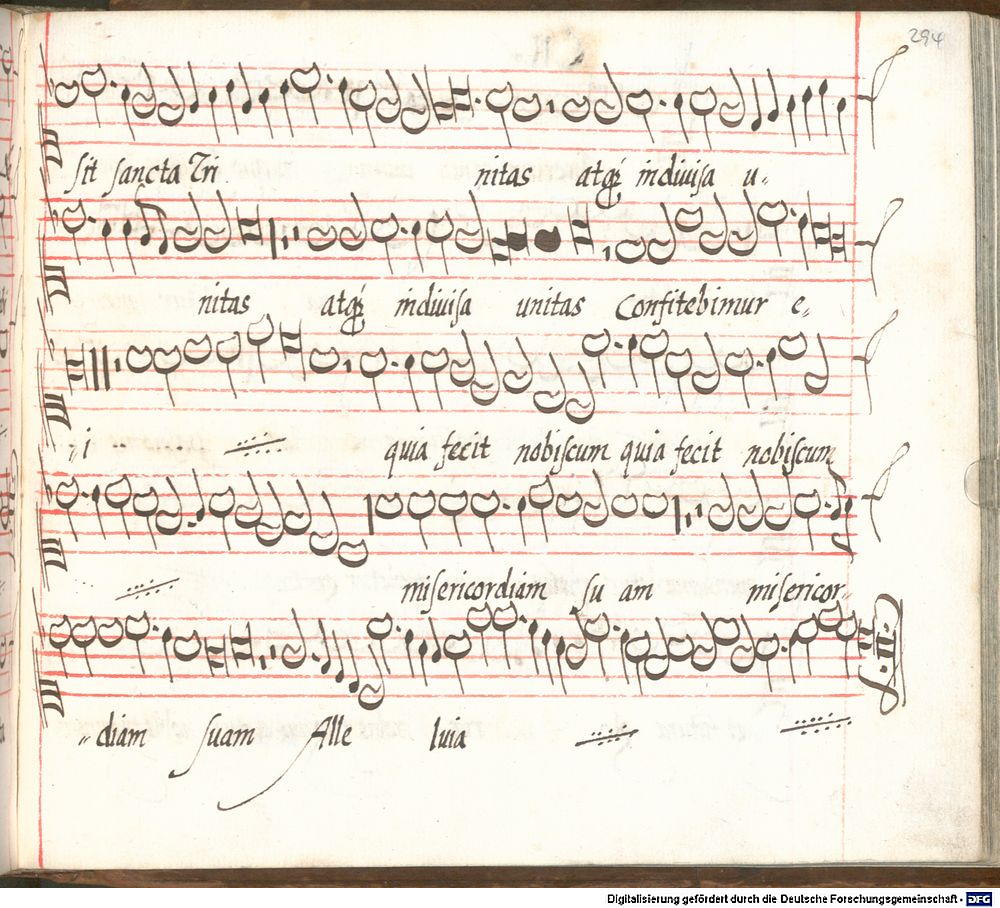 294
sit sancta Tri nitas atq; indiuisa u-
nitas atq; indiuisa unitas Confitebimur e-
-i quia fecit nobiscum quia fecit nobiscum
misericordiam su am misericor-
-diam suam Alle luia
Digitalisierung gefördert durch die Deutsche Forschungsgemeinschaft - DFG